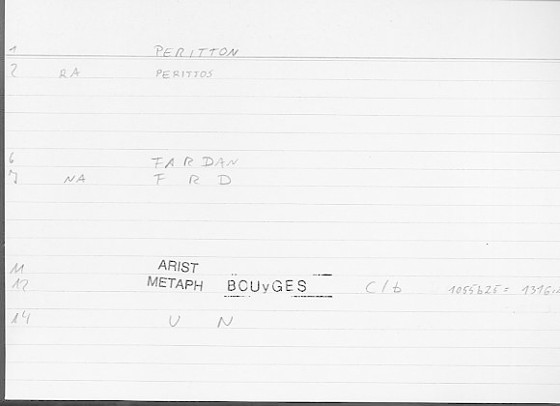 1 PERITTON
2 RA PERITTOS
6 FARDAN
7 NA F R D
11 ARIST
12 METAPH BOUyGES C/b 1055b25 =
14 U N